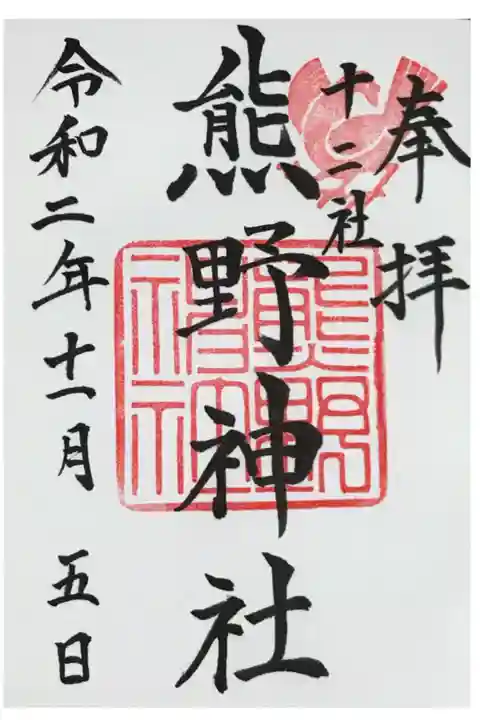 奉拝
十二社
熊野神社
令和二年十一月 五日